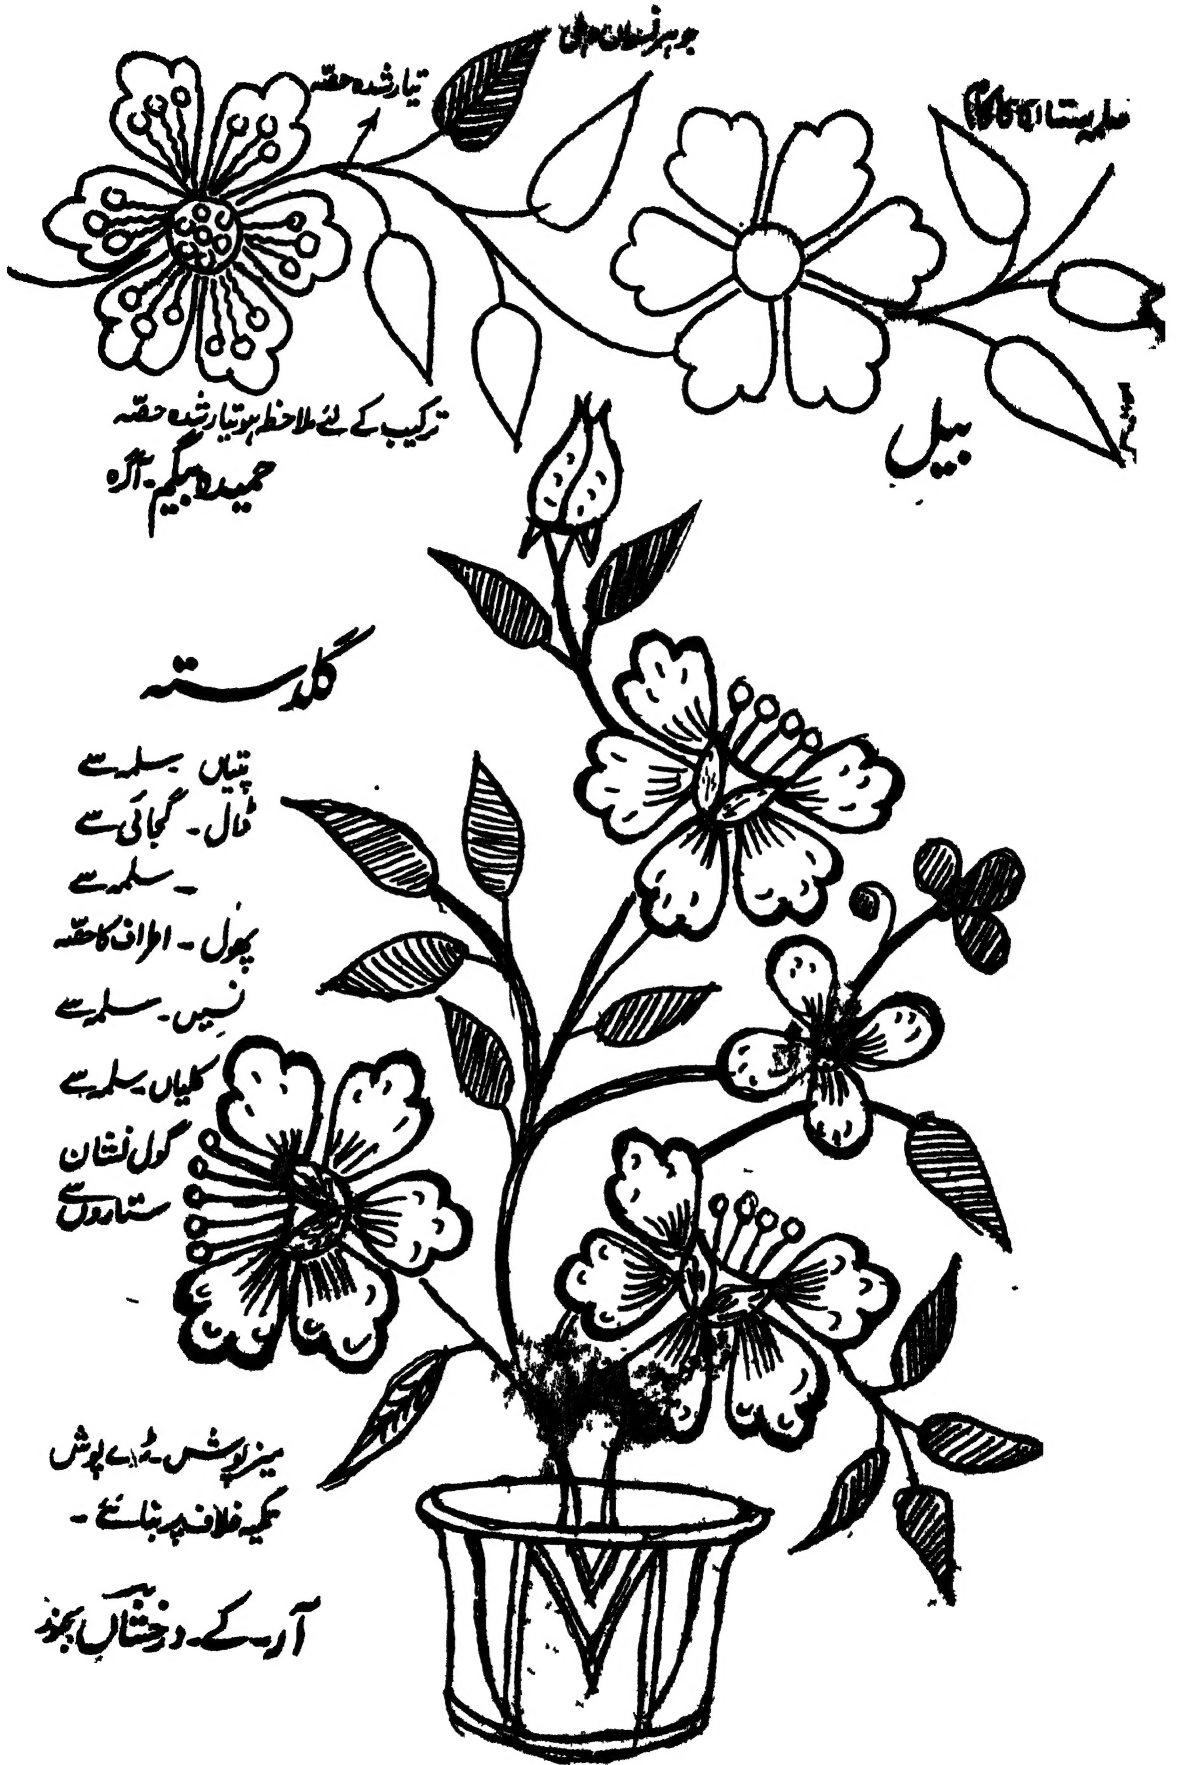 سلمہ ستارہ کا کام
تیار شدہ حصّہ
ترکیب کے لئے ملاحظہ ہو تیار شدہ حصّہ
حمیدہ بیگم۔ آگرہ
بیل
گلدستہ
پتیاں ۔ سلمہ سے
ڈال ۔ گجائی سے
۔ سلمہ سے
پھول ۔ اطراف کا حصّہ
نسیں ۔ سلمہ سے
کلیاں سلمہ سے
گول نشان
ستاروں سے
میزپوش ۔ ٹرے پوش
تکیہ غلاف پر بنائے ۔
آر ۔ کے ۔ درخشاں